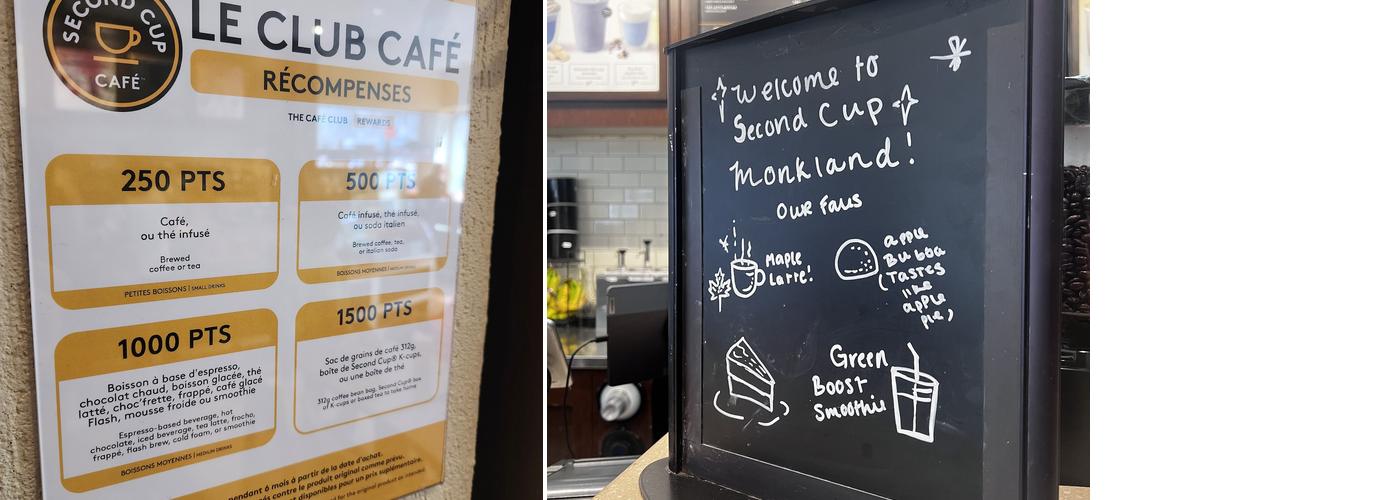 SECOND CUP
CAFÉ
LE CLUB CAFÉ
RÉCOMPENSES
THE CAFÉ CLUB REWARDS
250 PTS
Café,
ou thé infusé
Brewed
coffee or tea
PETITES BOISSONS | SMALL DRINKS
500 PTS
Café infusé, thé infusé,
ou soda italien
Brewed coffee, tea,
or italian soda
BOISSONS MOYENNES | MEDIUM DRINKS
1000 PTS
Boisson à base d'espresso,
chocolat chaud, boisson glacée, thé
latté, choc'frette, frappé, café glacé
Flash, mousse froide ou smoothie
Espresso-based beverage, hot
chocolate, iced beverage, tea latte, frocho,
frappé, flash brew, cold foam, or smoothie
BOISSONS MOYENNES | MEDIUM DRINKS
1500 PTS
Sac de grains de café 312g,
boîte de Second Cup® K-cups,
ou une boîte de thé
312g coffee bean bag, Second Cup® box
of K-cups or boxed tea to take home
pendant 6 mois à partir de la date d'achat.
contre le produit original comme prévu.
disponibles pour un prix supplémentaire.
for the original product as intended.
Welcome to
Second Cup
Monkland!
Our favs
Maple
Latte!
apple
Bubba
(Tastes
like
apple
pie)
Green
Boost
Smoothie